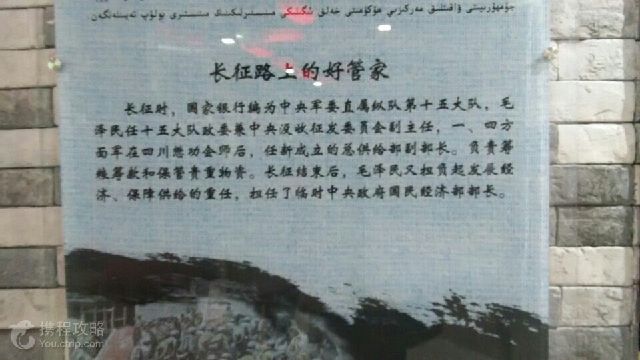 جۇمھۇرىيىتى ۋاقىتلىق مەركىزىي ھۆكۈمىتى خەلق
长征路上的好管家
长征时，国家银行编为中央军委直属纵队第十五大队，毛
泽民任十五大队政委兼中央没收征发委员会副主任，一、四方
面军在四川懋功会师后，任新成立的总供给部副部长。负责筹
粮筹款和保管贵重物资。长征结束后，毛泽民又担负起发展经
济、保障供给的重任，担任了临时中央政府国民经济部部长。
携程攻略
You.ctrip.com